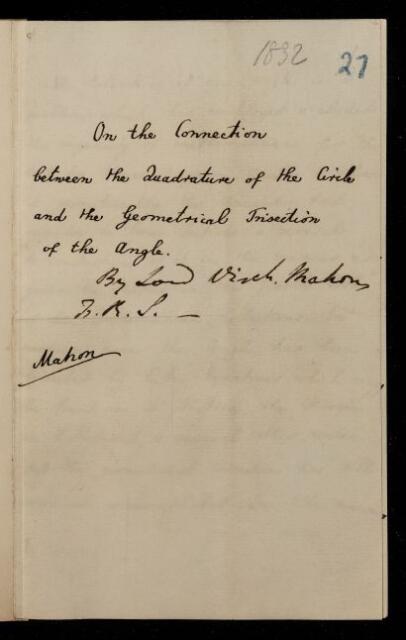 1832
27
On the Connection
between the Quadrature of the Circle
and the Geometrical Trisection
of the Angle.
By Lord Visct. Mahon,
F. R. S. —
Mahon